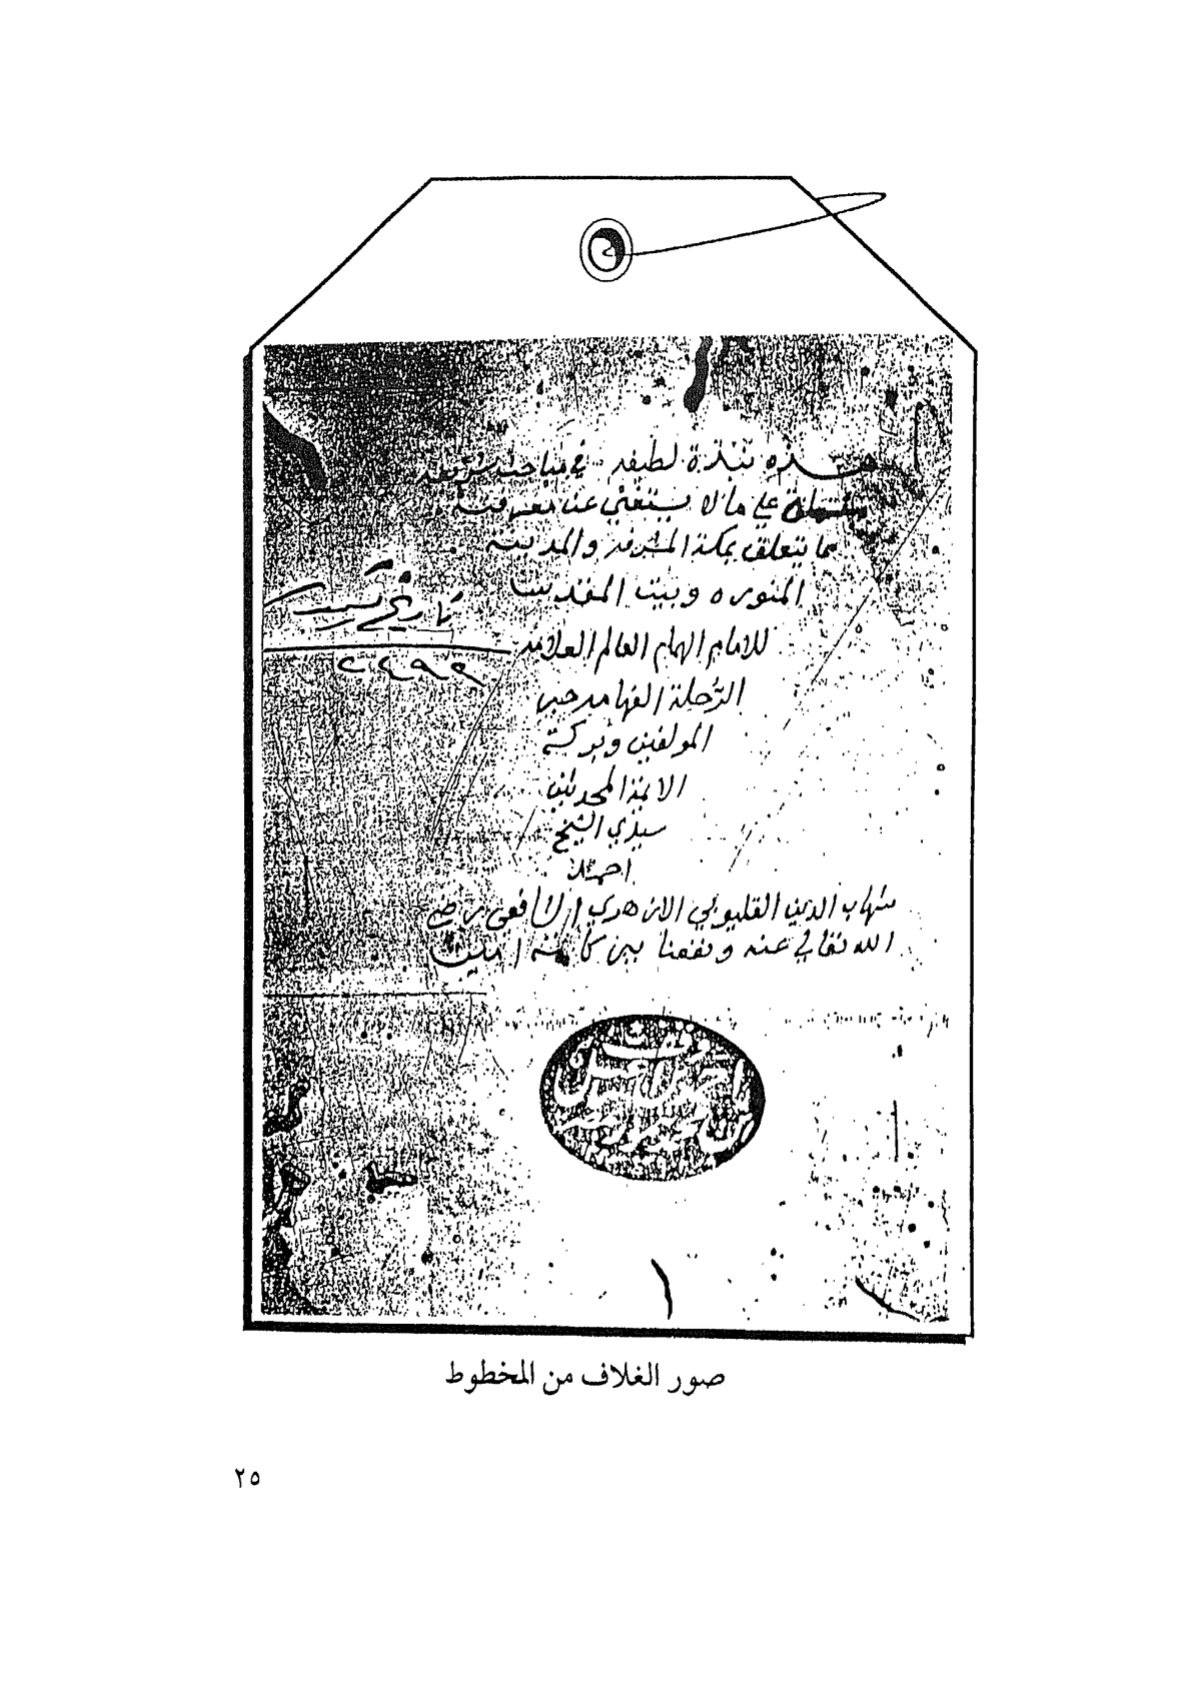 هذه نبذة لطيفه في مباحث شريفه
مشتملة علي ما لا يستغني عن معرفته
مما يتعلق بمكة المشرفه والمدينه
المنوره وبيت المقدس
للامام الهمام العالم العلامه
الرُحلة الفهامه
المولفين وبركة
الايمة المحدثين
سيدي الشيخ
احمد
شهاب الدين القليوبي الازهري الشافعى رضي
الله تعالي عنه ونفعنا ببركاته امين
تاريخ
٢٤٩٩
صور الغلاف من المخطوط
٢٥